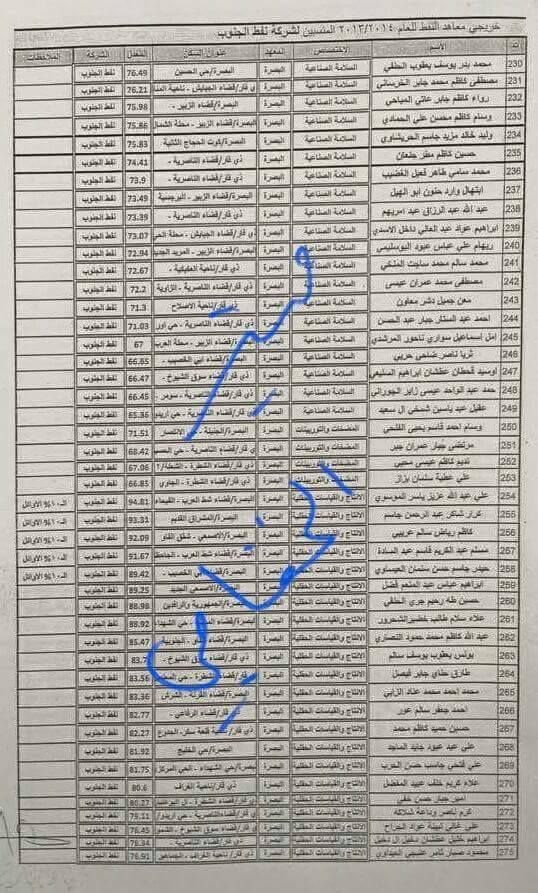 خريجي معاهد النفط للعام ٢٠١٣/٢٠١٤ المنتسبين لشركة نفط الجنوب
ت الاسم الاختصاص المعهد عنوان السكن المعدل الشركة الملاحظات
230 محمد بدر يوسف يعقوب الحلفي السلامة الصناعية البصرة البصرة/حي الحسين 76.49 نفط الجنوب
231 مصطفى كاظم محمد جابر الخرساني السلامة الصناعية البصرة ذي قار/قضاء الجبايش - ناحية 76.21 نفط الجنوب
232 رواء كاظم جابر عاتي المياحي السلامة الصناعية البصرة البصرة/قضاء الزبير - 75.98 نفط الجنوب
233 وسام محمد محسن علي الحمادي السلامة الصناعية البصرة البصرة/قضاء الزبير - محلة الشمال 75.86 نفط الجنوب
234 وليد خالد مزيد جاسم الحريشاوي السلامة الصناعية البصرة البصرة/كوت الحجاج الثانية 75.83 نفط الجنوب
235 حسين كاظم مطر جنعان السلامة الصناعية البصرة ذي قار/قضاء الناصرية - 74.41 نفط الجنوب
236 محمد سامي طاهر فعيل الغضيب السلامة الصناعية البصرة ذي قار/قضاء الناصرية - 73.9 نفط الجنوب
237 ابتهال وارد حنون ابو الهيل السلامة الصناعية البصرة البصرة/قضاء الزبير - البرجسية 73.49 نفط الجنوب
238 عبد الله عبد الرزاق عبد امريهم السلامة الصناعية البصرة ذي قار/قضاء الناصرية - 73.39 نفط الجنوب
239 ابراهيم عواد عبد العالي داخل الاسدي السلامة الصناعية البصرة ذي قار/قضاء الجبايش - محلة 73.07 نفط الجنوب
240 ريهام علي عباس عبود البوسليمي السلامة الصناعية البصرة البصرة/قضاء الزبير - المربد الجديد 72.94 نفط الجنوب
241 محمد سالم محمد ساجت السلامة الصناعية البصرة ذي قار/ناحية العكيكة - 72.67 نفط الجنوب
242 مصطفى محمد عمران عيسى السلامة الصناعية البصرة ذي قار/قضاء الناصرية - الزاوية 72.2 نفط الجنوب
243 معن جميل دشر معاون السلامة الصناعية البصرة ذي قار/ناحية الاصلاح 71.3 نفط الجنوب
244 احمد عبد الستار جبار عبد الحسن السلامة الصناعية البصرة ذي قار/قضاء الناصرية - حي اور 71.03 نفط الجنوب
245 امل إسماعيل سواري ناحور المرشدي السلامة الصناعية البصرة البصرة/قضاء الزبير - محلة العرب 67 نفط الجنوب
246 ثريا ناصر ضاحي حربي السلامة الصناعية البصرة البصرة/قضاء ابي الخصيب - 66.65 نفط الجنوب
247 اوسيد قحطان عطشان ابراهيم السلامة الصناعية البصرة ذي قار/قضاء سوق الشيوخ - 66.47 نفط الجنوب
248 حمد عبد الواحد عيسى زاير الجوراني السلامة الصناعية البصرة ذي قار/قضاء الناصرية - سومر 66.45 نفط الجنوب
249 عقيل عبد ياسين شنخي ال سعيد السلامة الصناعية البصرة ذي قار/قضاء الناصرية - حي اريدو 65.36 نفط الجنوب
250 وسام احمد قاسم يحيى الفلحي المضخات والتوربينات البصرة البصرة/الجنينة - حي الانتصار 71.51 نفط الجنوب
251 مرتضى جبار عمران جبر المضخات والتوربينات البصرة ذي قار/قضاء الناصرية - حي 68.42 نفط الجنوب
252 نديم كاظم عيسى محيي المضخات والتوربينات البصرة ذي قار/قضاء الشطرة - الشعلة/٢ 67.06 نفط الجنوب
253 علي عطية سلمان بزاز المضخات والتوربينات البصرة ذي قار/قضاء الشطرة - 66.85 نفط الجنوب
254 علي عبد الله عزيز ياسر الموسوي الانتاج والقياسات الحقلية البصرة البصرة/قضاء شط العرب - 94.81 نفط الجنوب الـ ١٠% الاوائل
255 كرار شاكر عبد الرحمن جاسم الانتاج والقياسات الحقلية البصرة البصرة/المشراق القديم 93.31 نفط الجنوب الـ ١٠% الاوائل
256 كاظم رياض سالم عريبي الانتاج والقياسات الحقلية البصرة البصرة/الاصمعي - شقق 92.09 نفط الجنوب الـ ١٠% الاوائل
257 مسلم عبد الكريم قاسم عبد السادة الانتاج والقياسات الحقلية البصرة البصرة/قضاء شط العرب - 91.67 نفط الجنوب الـ ١٠% الاوائل
258 حيدر جاسم حسن سلمان العيساوي الانتاج والقياسات الحقلية البصرة البصرة/قضاء ابي الخصيب - 89.42 نفط الجنوب الـ ١٠% الاوائل
259 ابراهيم عباس عبد المنعم فضل الانتاج والقياسات الحقلية البصرة البصرة/الاصمعي الجديد 89.25 نفط الجنوب
260 حسين طه رحيم جري الحلفي الانتاج والقياسات الحقلية البصرة البصرة/الجمهورية والرافدين 88.98 نفط الجنوب
261 علاء سلام طالب خضير الانتاج والقياسات الحقلية البصرة حي الشهداء 88.92 نفط الجنوب
262 عبد الله كاظم محمد حمود النصاري الانتاج والقياسات الحقلية البصرة 85.47 نفط الجنوب
263 يونس يعقوب يوسف سالم الانتاج والقياسات الحقلية البصرة ذي قار/قضاء سوق الشيوخ - 83.7 نفط الجنوب
264 طارق حناي جابر فيصل الانتاج والقياسات الحقلية البصرة ذي قار/قضاء الشطرة - حي 83.56 نفط الجنوب
265 محمد احمد محمد عناد الزابي الانتاج والقياسات الحقلية البصرة البصرة/قضاء القرنة - الشرش 83.36 نفط الجنوب
266 احمد جعفر سالم عور الانتاج والقياسات الحقلية البصرة ذي قار/قضاء الرفاعي - 82.77 نفط الجنوب
267 حسين حميد كاظم محمد الانتاج والقياسات الحقلية البصرة ذي قار/ناحية قلعة سكر- 82.27 نفط الجنوب
268 علي عبد عبود جايد الماجد الانتاج والقياسات الحقلية البصرة البصرة/حي الخليج 81.92 نفط الجنوب
269 علي فتحي جاسب حسن الحرب الانتاج والقياسات الحقلية البصرة البصرة/حي الشهداء - الحي المركزي 81.75 نفط الجنوب
270 علاء كريم خلف عبيد المفضل الانتاج والقياسات الحقلية البصرة ذي قار/ناحية الغراف 80.6 نفط الجنوب
271 امير جبار حسن خفي الانتاج والقياسات الحقلية البصرة ذي قار/قضاء الشطرة - ال 80.27 نفط الجنوب
272 كرم ناصر وداعة الانتاج والقياسات الحقلية البصرة ذي قار/قضاء الناصرية - حي اريدو 79.11 نفط الجنوب
273 علي غالي عواد الجراح الانتاج والقياسات الحقلية البصرة ذي قار/قضاء سوق الشيوخ - 76.45 نفط الجنوب
274 ابراهيم خليل عطشان دخيل ال دخيل الانتاج والقياسات الحقلية البصرة ذي قار/قضاء الناصرية - 76.34 نفط الجنوب
275 محمود صبار ثامر العبداوي الانتاج والقياسات الحقلية البصرة ذي قار/ناحية الغراف - 76.91 نفط الجنوب